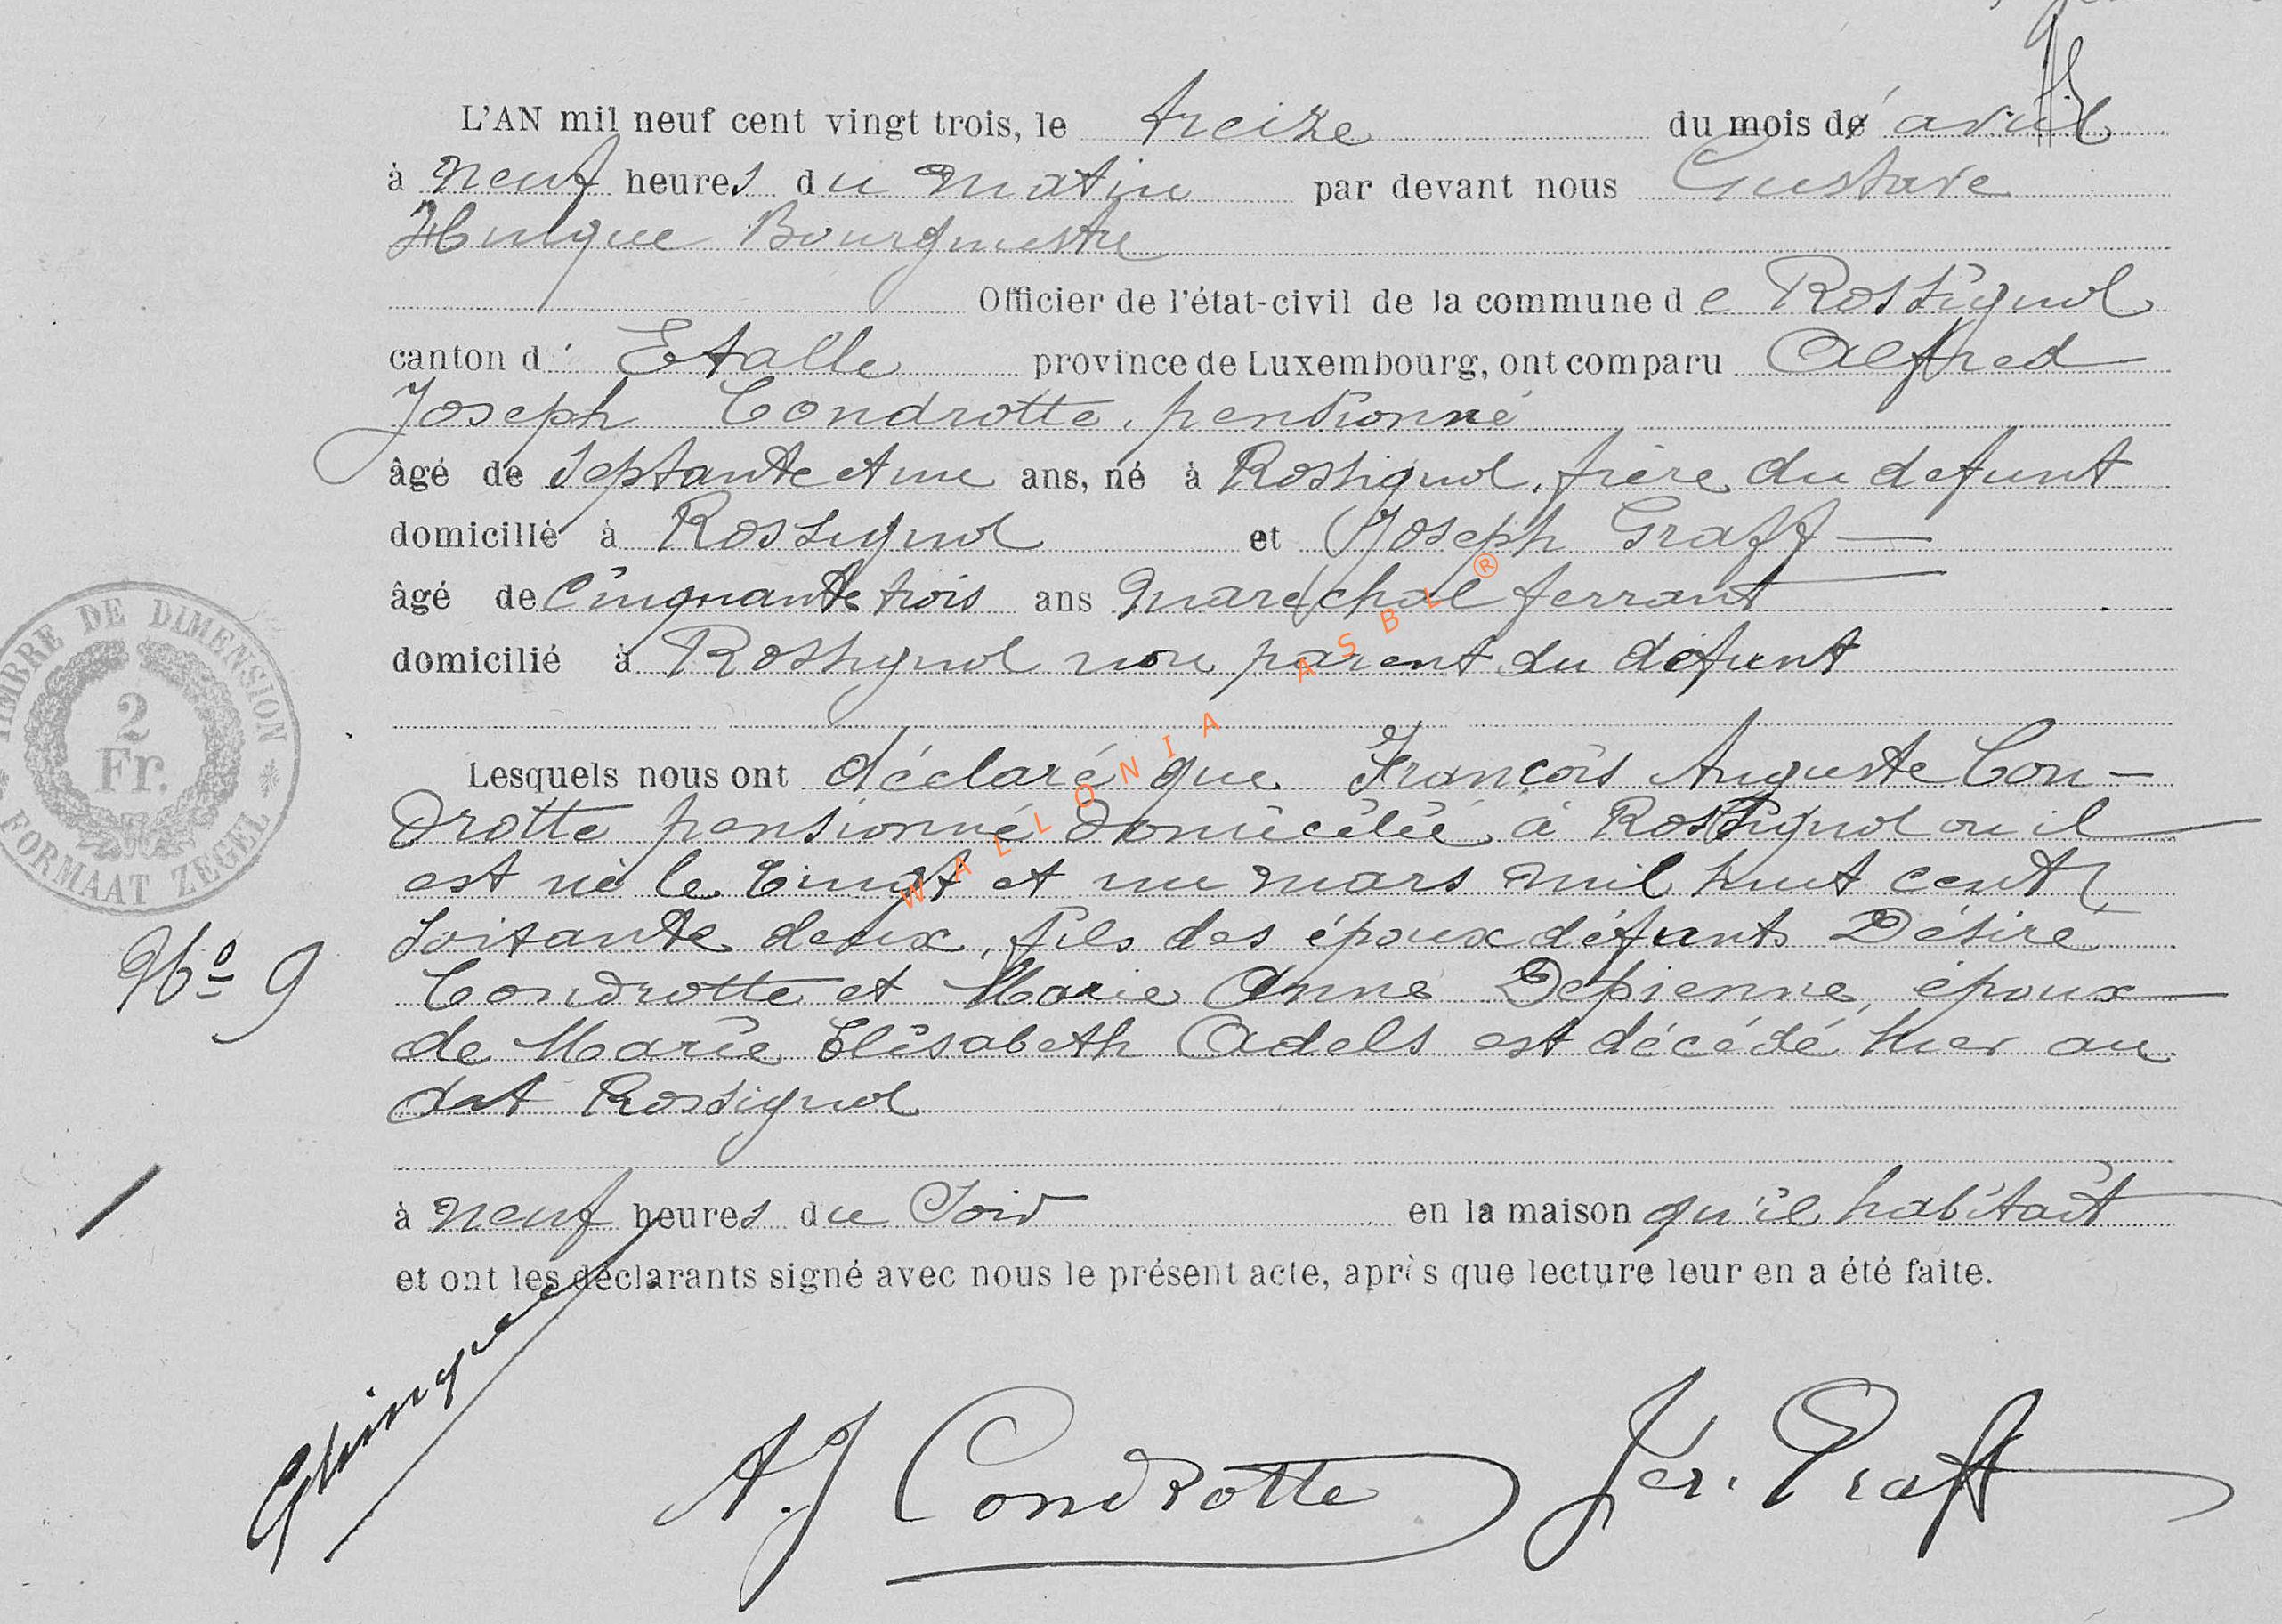 L'AN mil neuf cent vingt trois, le treize du mois d' avril
à neuf heures du matin par devant nous Gustave
Hinque Bourgmestre
Officier de l'état-civil de la commune de Rossignol
canton d' Etalle province de Luxembourg, ont comparu Alfred
Joseph Condrotte, pensionné
âgé de septante et un ans, né à Rossignol, frère du defunt
domicilié à Rossignol et Joseph Graff
âgé de Cinquante trois ans Marechal ferrant
domicilié à Rossignol non parent du défunt
Lesquels nous ont déclaré que François Auguste Con-
drotte pensionné domicilié à Rossignol ou il
est né le vingt et un mars mil huit cent
soixante deux, fils des époux défunts Désiré
Condrotte et Marie Anne Depienne, époux
de Marie Elisabeth Adels est décédé hier au
dit Rossignol
à neuf heures du Soir en la maison qu'il habitait
et ont les déclarants signé avec nous le présent acte, après que lecture leur en a été faite.
TIMBRE DE DIMENSION
2
Fr.
FORMAAT ZEGEL
No 9
GHinque
A. J Condrotte
Jos. Graff
WALLONIA ASBL ®